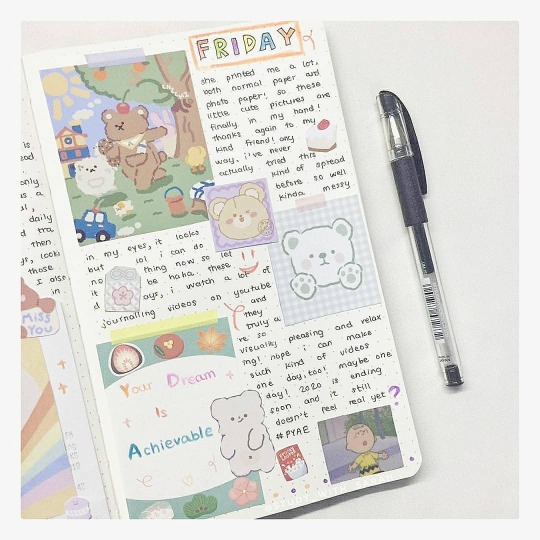 FRIDAY
she printed me a lot,
both normal paper and
photo paper! so these
little cute pictures are
finally in my hand!
thanks again to my
kind friend! any
way, i've never
actually tried this
kind of spread
before so well
kinda messy
in my eyes, it looks
but lol i can do
no thing now so let
it be haha. these
days, i watch a lot of
journalling videos on youtube
and
they
truly a
're so
visually pleasing and relax
ing! hope i can make
such kind of videos
one day, too! maybe one
day! 2020 is ending
soon and it still
doesn't feel real yet?
#PYAE
Your Dream
Is
Achievable
is
ead
only
is a
daily
tra
then
looks
those
I also
in
MISS
YOU